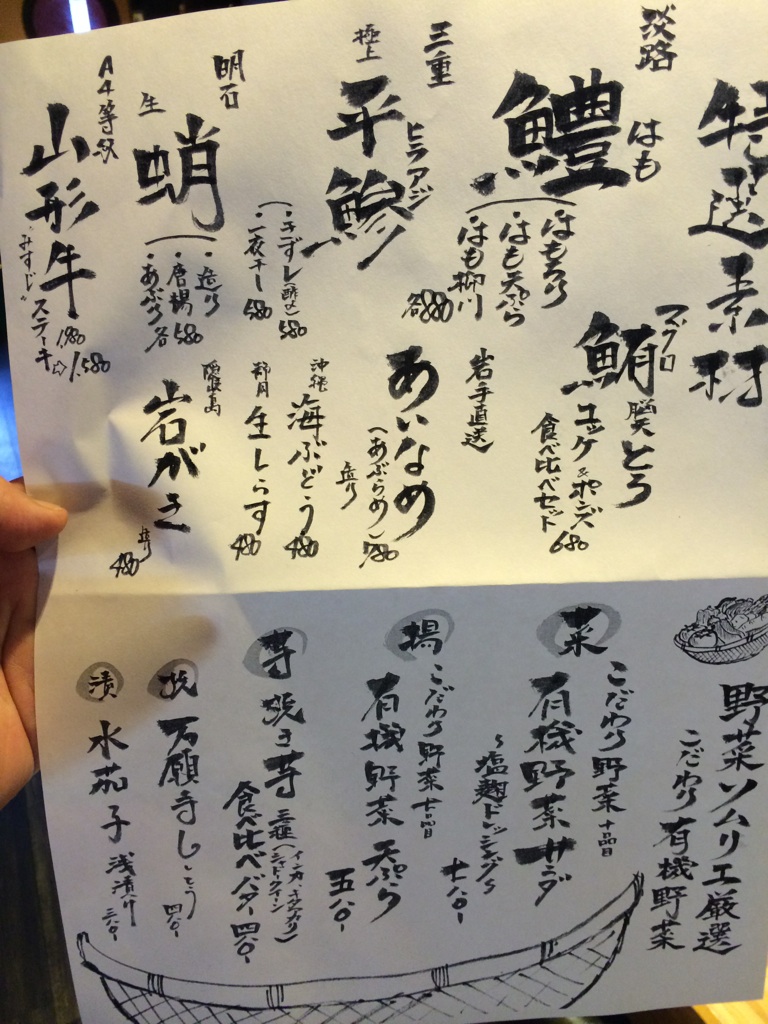 特選素材
淡路
鱧
はも
はもちり
はも天ぷら
はも柳川
各880
マグロ
鮪
脳天とろ
ユッケ&ポンズ
食べ比べセット
680
三重
極上
平鯵
ヒラアジ
・一夜干し 580
岩手直送
あいなめ
(あぶらめ)
造り
780
明石
生
蛸
・造り
・唐揚
・あぶり 各580
沖縄
海ぶどう 480
生しらす 480
A4等級
山形牛
"みすじ"
ステーキ
1.980⇨1.580
岩がき
造り
480
野菜ソムリエ厳選
こだわり有機野菜
菜
こだわり野菜十品目
有機野菜サラダ
~塩麹ドレッシング~
七八〇-
揚
こだわり野菜十品目
有機野菜天ぷら
五八〇-
芋
焼き芋三種
食べ比べバター 四八〇-
焼
万願寺ししとう
漬
水茄子 浅漬け
三八〇-